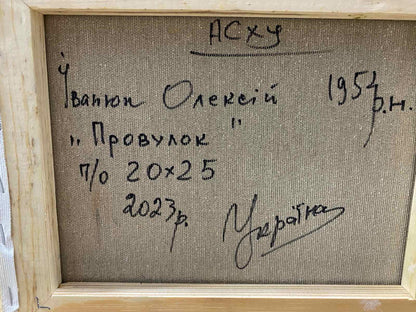 АСХУ
Іванюк Олексій 1954 р.н.
„Провулок"
п/о 20×25
2023р. Україна